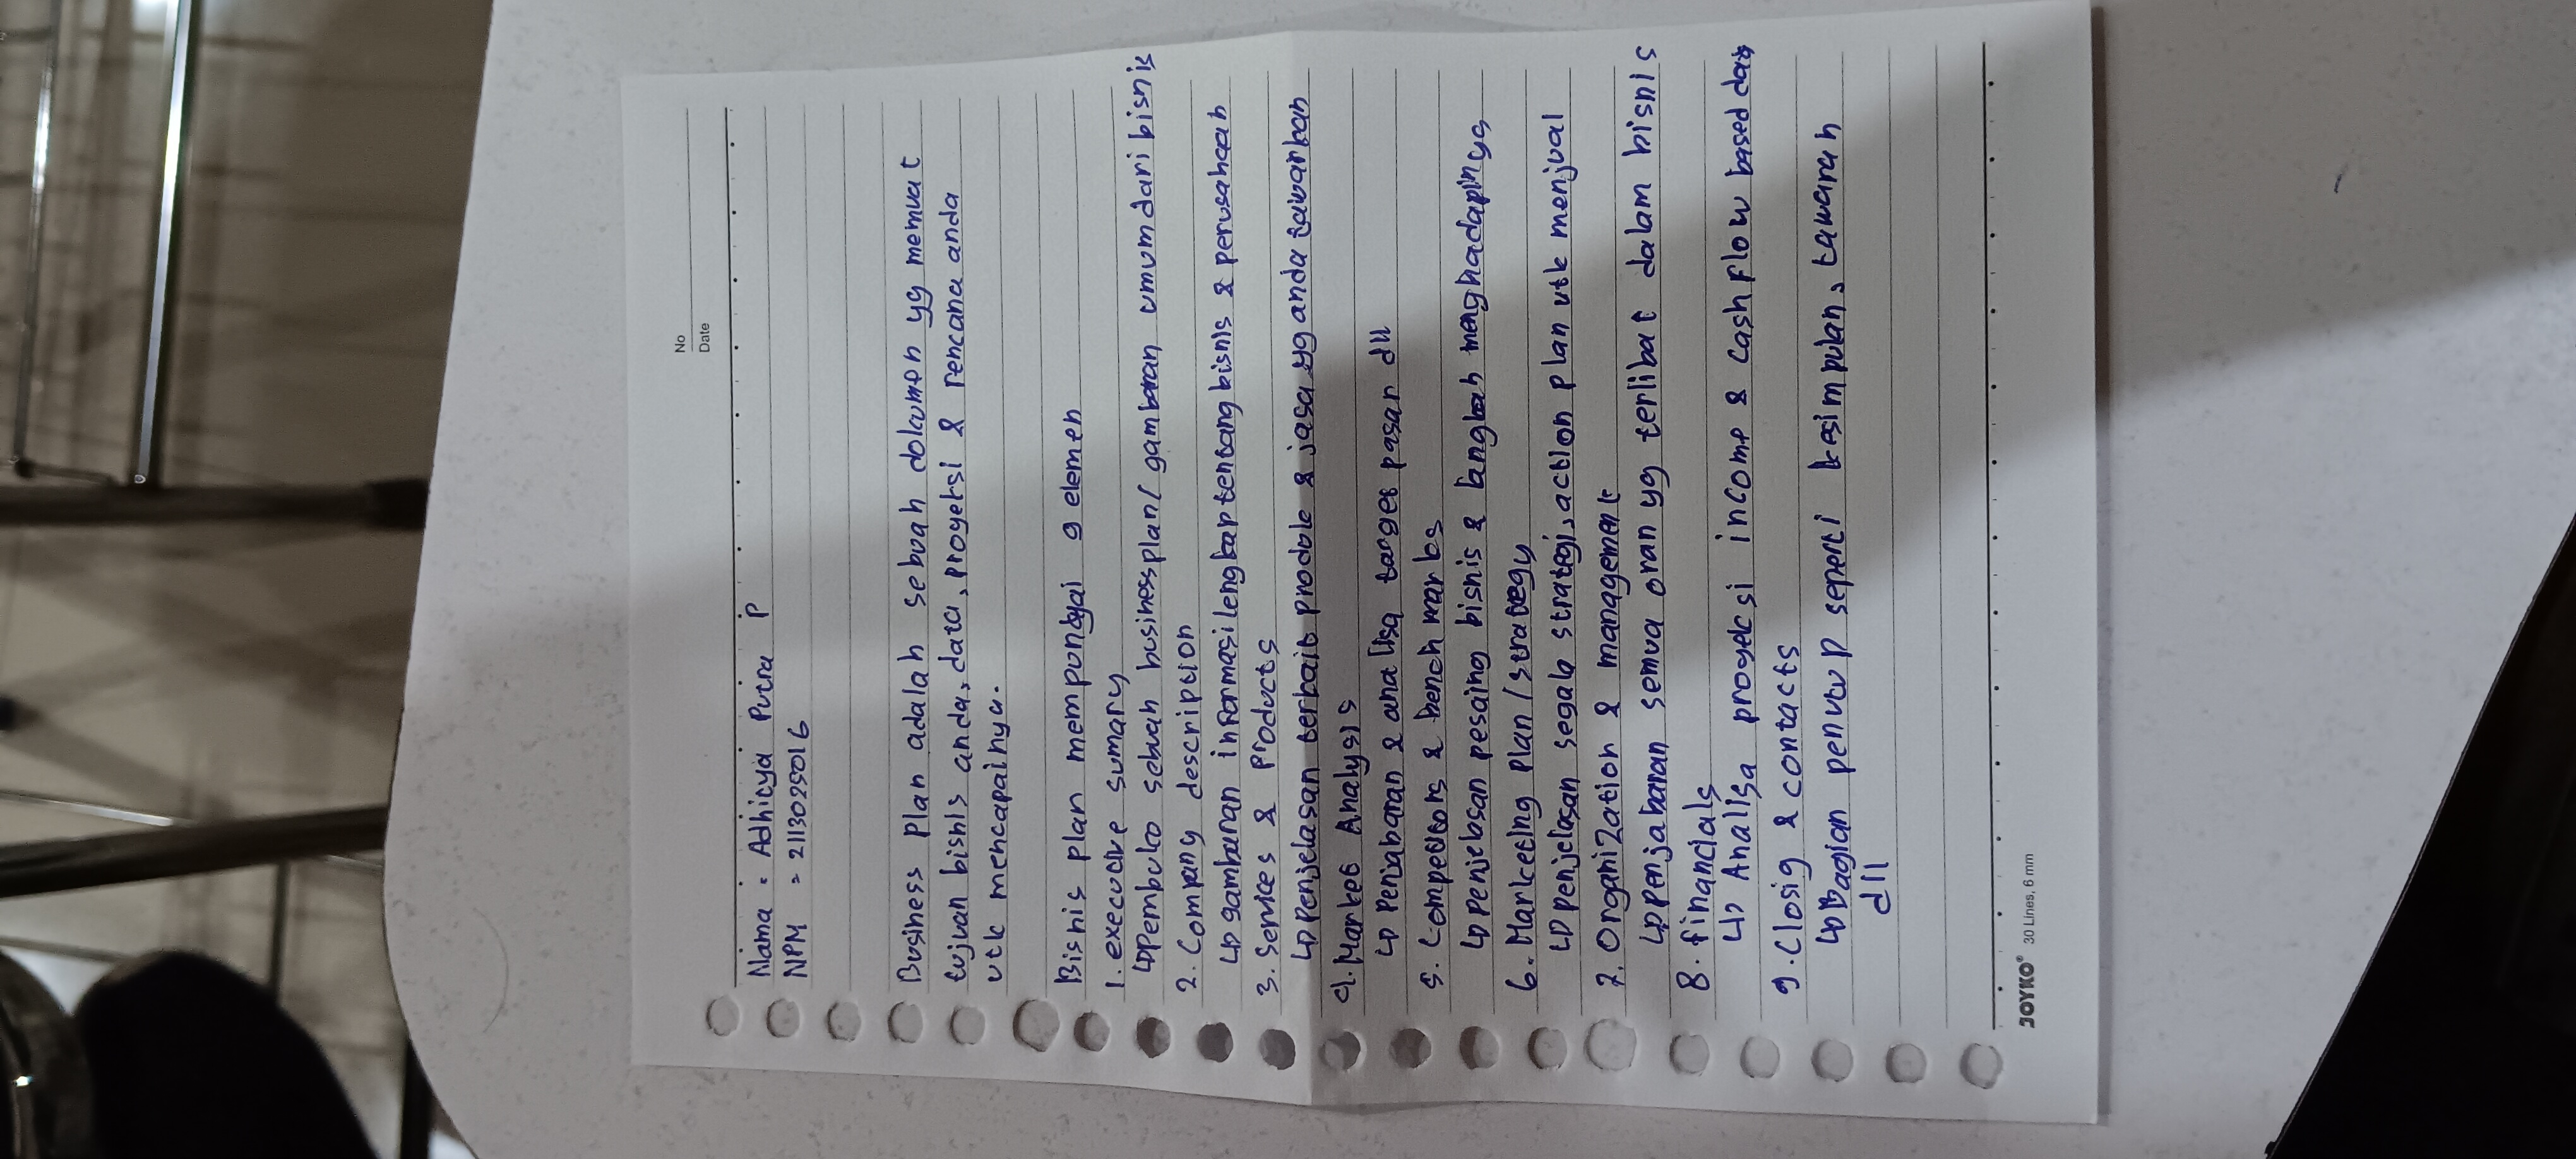 No
Date
Nama = Adhitya Putra P
NPM = 2113025016
Business plan adalah sebuah dokumen yg memuat
tujuan bisnis anda, data, proyeksi & rencana anda
utk mencapainya.
Bisnis plan mempunyai 9 elemen
1. executive sumary
↳ Pembuka sebuah business plan / gambaran umum dari bisnis
2. Company description
↳ gambaran informasi lengkap tentang bisnis & perusahaan
3. Services & Products
↳ Penjelasan terkait produk & jasa yg anda tawarkan
4. Market Analysis
↳ Penjabaran & analisa target pasar dll
5. Competitors & bench marks
↳ penjelasan pesaing bisnis & langkah menghadapinya
6. Marketing plan / strategy
↳ penjelasan segala strategi, action plan utk menjual
7. Organization & management
↳ penjabaran semua oran yg terlibat dalam bisnis
8. financials
↳ Analisa proyeksi income & cashflow based data
9. Closig & contacts
↳ Bagian penutup seperti kesimpulan, tawaran
dll
JOYKO® 30 Lines, 6 mm